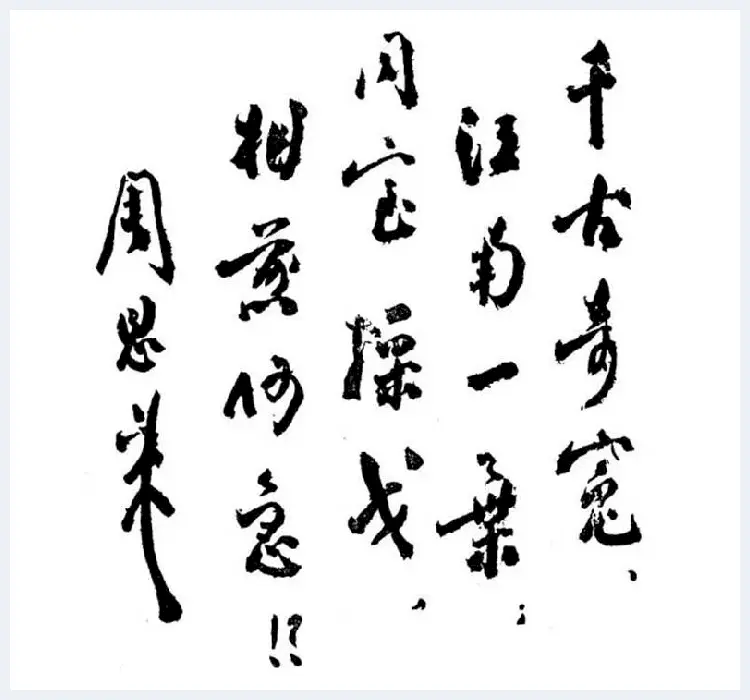 千古奇冤、
江南一葉;
同室操戈、
相煎何急!?
周恩来